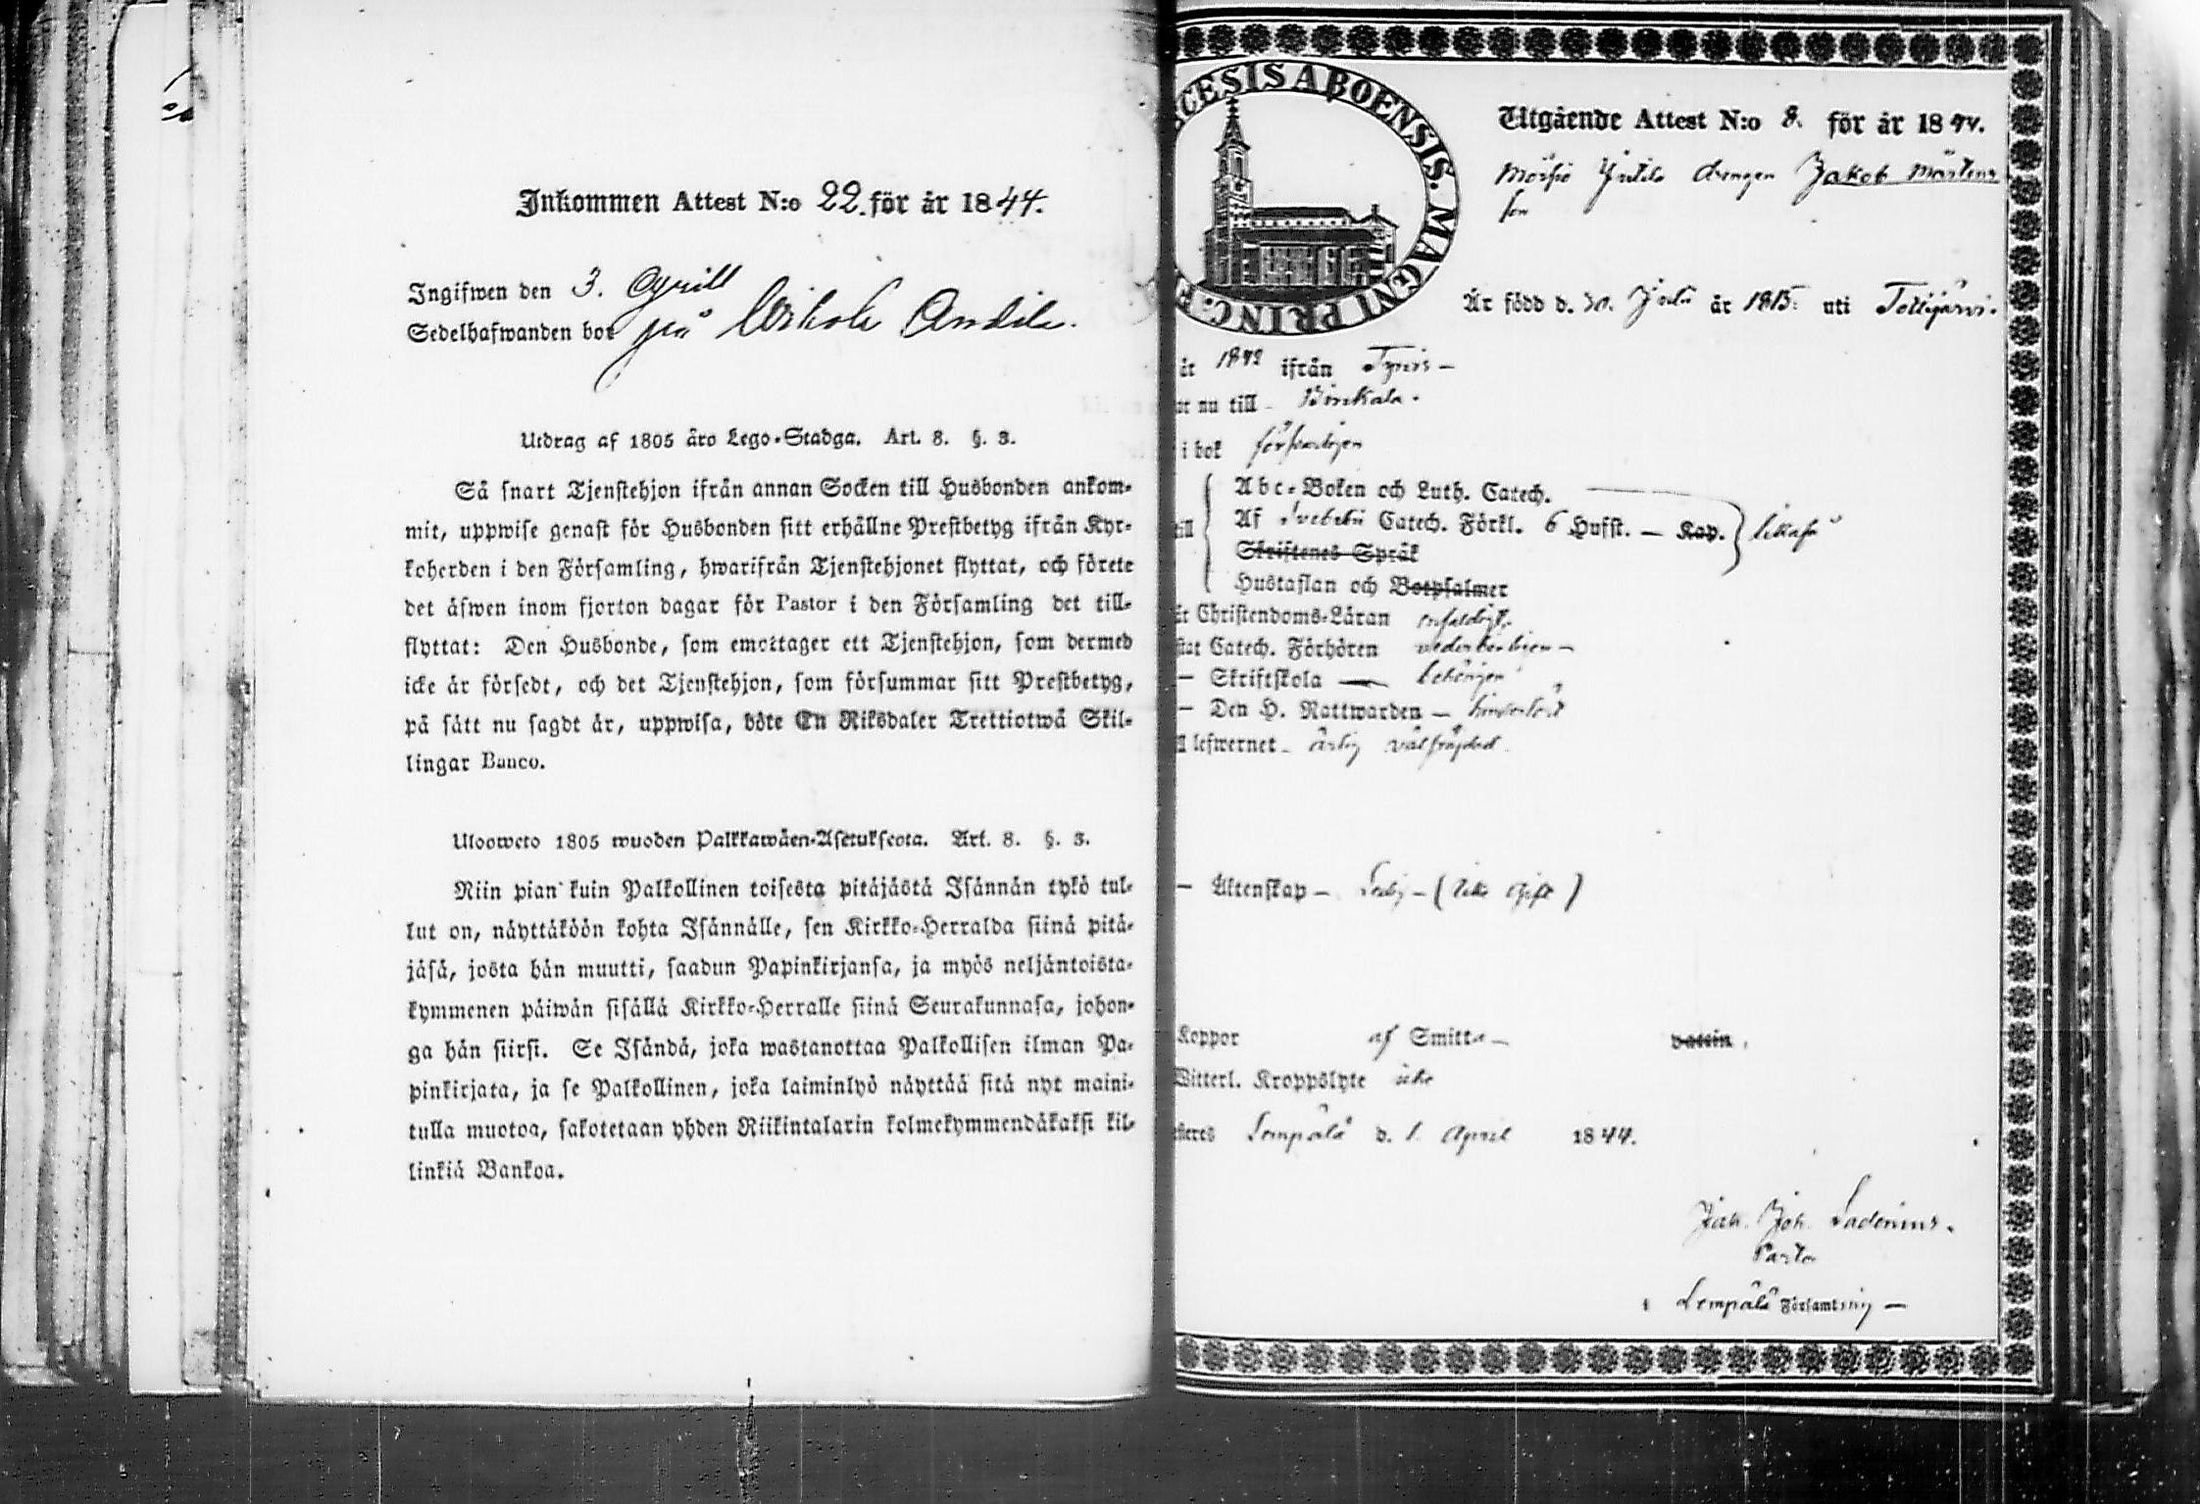 Inkommen Attest N:o 22. för år 1844.
Ingifwen den 3. Aprill
Sedelhafwanden bor på Andila.
Utdrag af 1805 åro Lego-Stadga. Art. 8. §. 3.
Så snart Tjenstehjon ifrån annan Socken till Husbonden ankom-
mit, uppwise genast för Husbonden sitt erhållne Prestbetyg ifrån Kyr-
koherden i den Församling, hwarifrån Tjenstehjonet flyttat, och förete
det äfwen inom fjorton dagar för Pastor i den Församling det till-
flyttat: Den Husbonde, som emottager ett Tjenstehjon, som dermed
icke är försedt, och det Tjenstehjon, som försummar sitt Prestbetyg,
på sätt nu sagdt är, uppwisa, böte En Riksdaler Trettiotwå Skil-
lingar Banco.
Ulooweto 1805 wuoden Palkkawäen-Asetukseota. Art. 8. §. 3.
Niin pian kuin Palkollinen toisesta pitäjästä Isännän tykö tul-
lut on, näyttäköön kohta Isännälle, sen Kirkko-Herralda siinä pitä-
jäsä, josta hän muutti, saadun Papinkirjansa, ja myös neljäntoista-
kymmenen päiwän sisällä Kirkko-Herralle siinä Seurakunnasa, johon-
ga hän siirsi. Se Isändä, joka wastanottaa Palkollisen ilman Pa-
pinkirjata, ja se Palkollinen, joka laiminlyö näyttää sitä nyt maini-
tulla muotoa, sakotetaan yhden Riikintalarin kolmekymmendäkaksi kil-
linkiä Bankoa.
CESIS ABOENSIS. MAGNI PRINC. F
Utgående Attest N:o 8. för år 1844.
drengen Jakob Mårtens
son
Är född d. 30. Juli år 1815. uti Tottijärvi.
år 1842 ifrån
ar nu till Birkala.
i bok försvarligen
Abc-Boken och Luth. Catech.
till Af Svebelii Catech. Förkl. 6 Hufst. — Kap. likaså
Skriftenes Språk
Hustaflan och Botpsalmer
år Christendoms-Läran enfaldigt.
stat Catech. Förhören wederbörligen —
— Skriftskola — behörigen
— Den H. Nattwarden — hinderlöst
ll lefwernet ärlig välfrägdad
— Äktenskap — Ledig — (icke gift)
Koppor af Smitta — vaccin.
Witterl. Kroppslyte icke
esteres Lempälä d. 1. April 1844.
Joh. Ladenius.
Pastor
i Lempälä Församling —